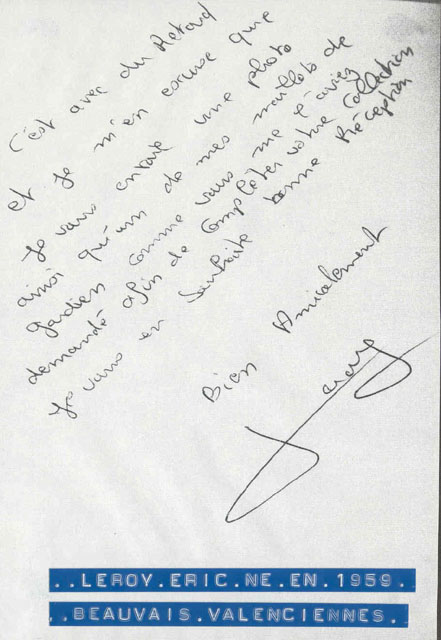 C'est avec du Retard
et je m'en excuse que
Je vous envoie une photo
ainsi qu'un de mes maillots de
gardien comme vous me l'aviez
demandé afin de Complèter votre Collection
Je vous en souhaite bonne Réception
Bien Amicalement
Leroy
..LEROY.ERIC.NE.EN.1959.
..BEAUVAIS.VALENCIENNES.